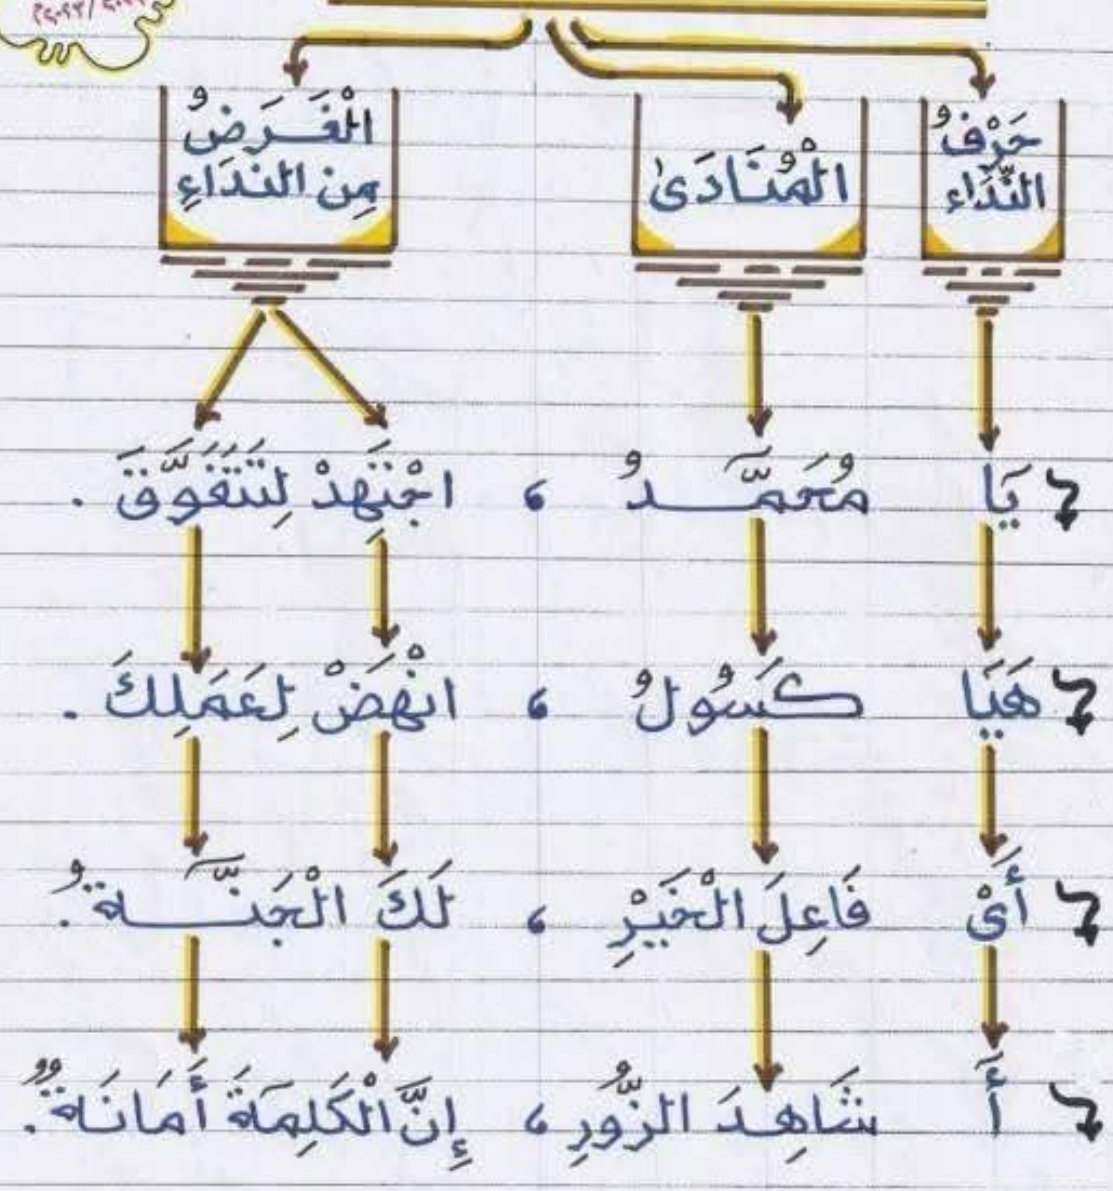 حَرْفُ النِّدَاء
الْمُنَادَىٰ
الْغَرَضُ مِن النِّدَاءِ
يَا مُحَمَّدُ ، اجْتَهِدْ لِتَتَفَوَّقَ .
هَيَا كَسُولُ ، انْهَضْ لِعَمَلِكَ .
أَىْ فَاعِلَ الْخَيْرِ ، لَكَ الْجَنَّةُ .
أَ شَاهِدَ الزُّورِ ، إِنَّ الْكَلِمَةَ أَمَانَةٌ .